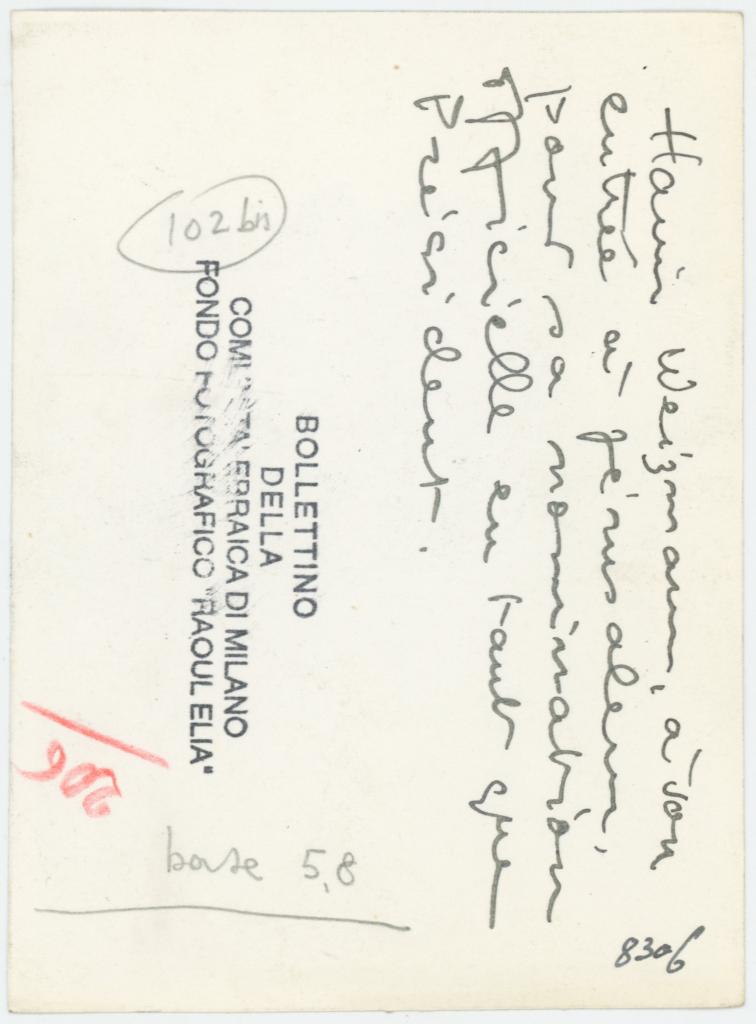 Haim Weizmann, à son
entrée à Jérusalem,
pour sa nomination
officielle en tant que
Président.
BOLLETTINO
DELLA
COMUNITA' EBRAICA DI MILANO
FONDO FOTOGRAFICO "RAOUL ELIA"
102 bis
base 5,8
8306